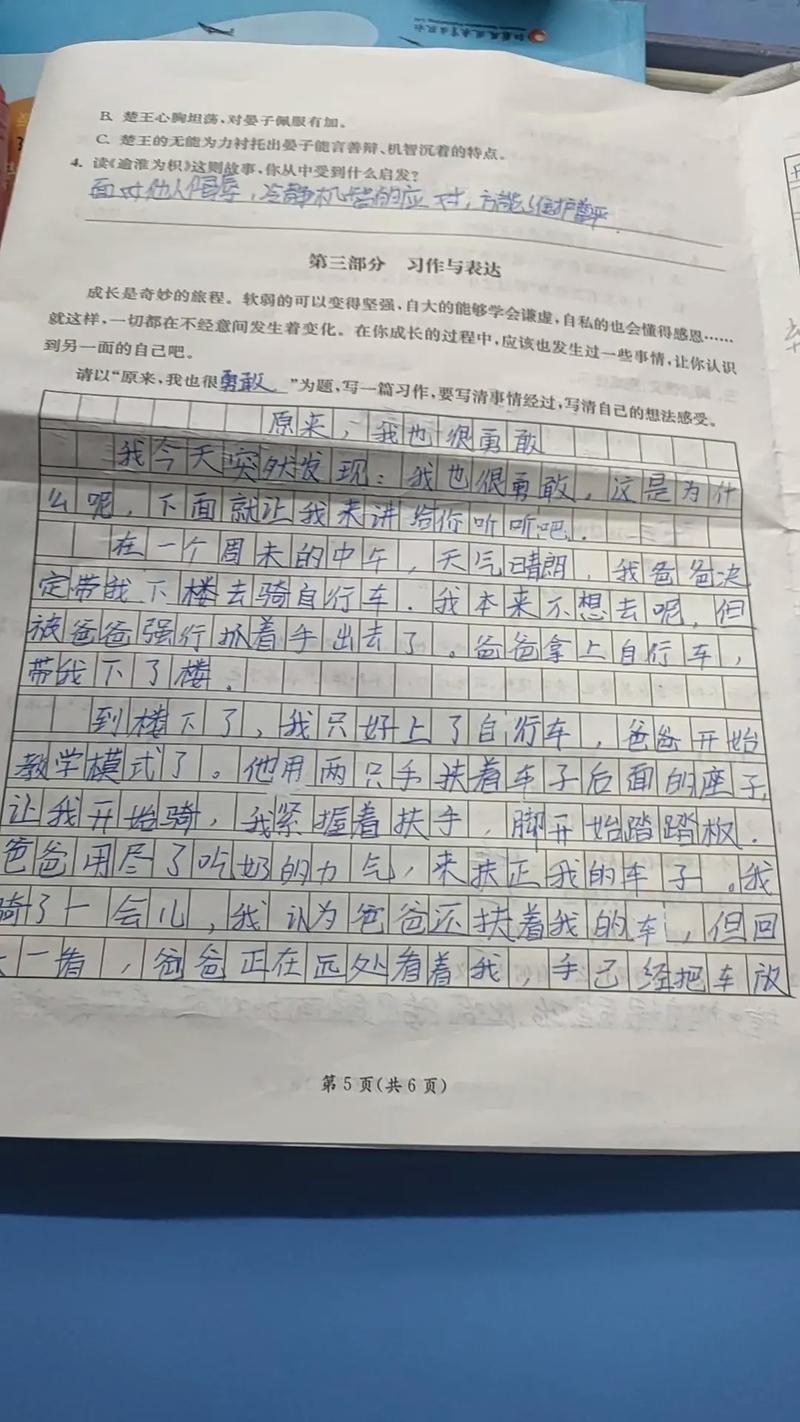 B. 楚王心胸坦荡,对晏子佩服有加。
C. 楚王的无能为力衬托出晏子能言善辩、机智沉着的特点。
4. 读《逾淮为枳》这则故事,你从中受到什么启发?
面对他人侮辱,冷静机智的应对,方能维护尊严.
第三部分 习作与表达
成长是奇妙的旅程。软弱的可以变得坚强,自大的能够学会谦虚,自私的也会懂得感恩……
就这样,一切都在不经意间发生着变化。在你成长的过程中,应该也发生过一些事情,让你认识
到另一面的自己吧。
请以“原来,我也很勇敢”为题,写一篇习作,要写清事情经过,写清自己的想法感受。
原来,我也很勇敢
我今天突然发现:我也很勇敢,这是为什
么呢,下面就让我来讲给你听听吧.
在一个周末的中午,天气晴朗,我爸爸决
定带我下楼去骑自行车.我本来不想去呢,但
被爸爸强行抓着手出去了。爸爸拿上自行车,
带我下了楼.
到楼下了,我只好上了自行车,爸爸开始
教学模式了。他用两只手扶着车子后面的座子,
让我开始骑,我紧握着扶手,脚开始踏踏板.
爸爸用尽了吃奶的力气,来扶正我的车子。我
骑了一会儿,我认为爸爸还扶着我的车,但回
一看,爸爸正在远处看着我,手已经把车放
第5页(共6页)